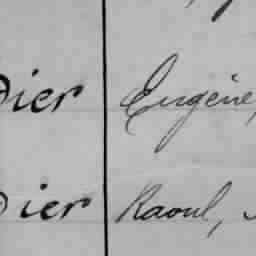 Dier Eugène,
Dier Raoul,